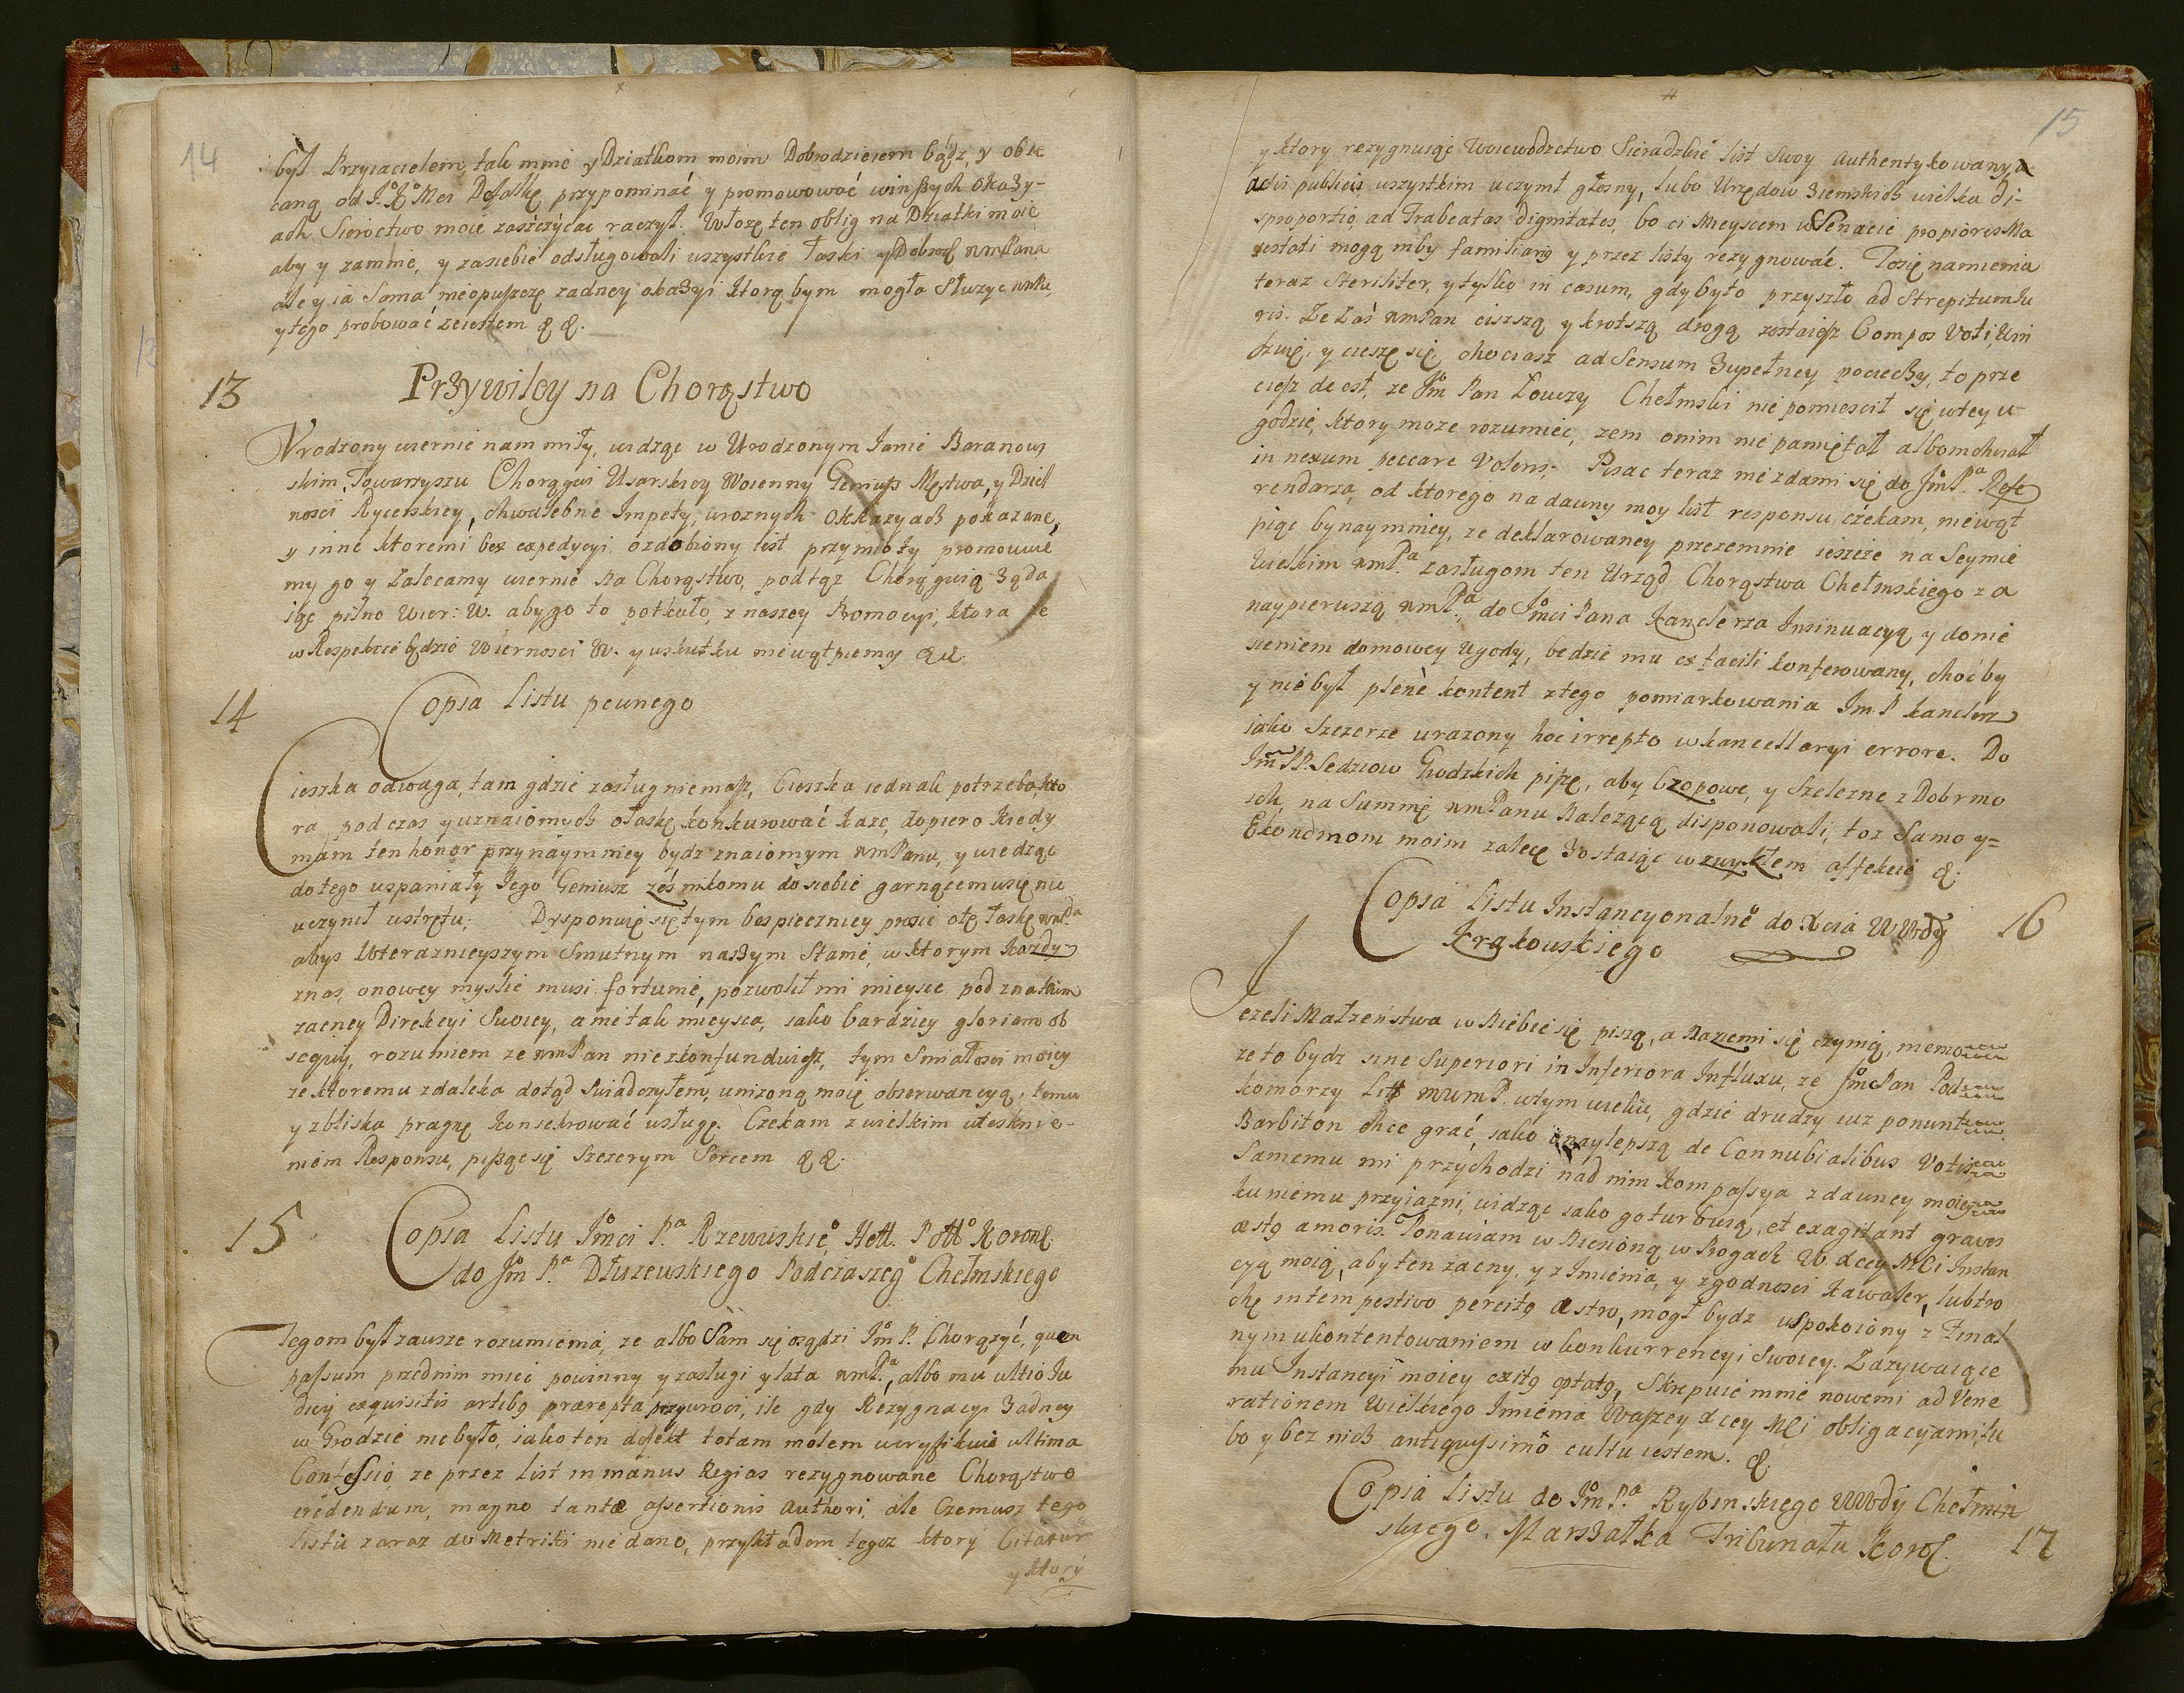 14
był Przyiacielem, tak mnie y Dziatkom moim Dobrodzieiem bądz, y obie
caną od J. K. Mci Dosatkę przypominać y promowować w inszych okazy-
ach Sieroctwo moie zaszczycac raczył. Włozę ten oblig na Dziatki moie
aby y zamnie, y zasiebie odsługowali wszystkie łaski y Dobroć wmPana
ale y ia Sama nieopuszczę zadney okazyi ktorą bym mogła słuzyc
y tego probować ze iestem &&.
13 Przywiley na Chorąstwo
Vrodzony wiernie nam miły, widząc w Urodzonym Janie Baranow
skim, Towarzyszu Chorągwi Usarskiey Woienny Geniusz Męstwa, y Dziel
nosci Rycerskiey, chwalebne Impety, w roznych okkazyach pokazane,
y inne ktoremi bez expedycyi ozdobiony iest przymioty promowuie
my go y Zalecamy wiernie na Chorąstwo, pod tąz Chorągwią Ząda
iąc pilno Wier: W. aby go to potkało, z naszey Promocyi, ktora ze
w Respekcie będzie Wiernosci W. y uskutku niewątpiemy &&.
14 Copia Listu pewnego
Cieszka odwaga, tam gdzie zasług niemasz, Cieszka iednak potrzeba, kto
ra pod czas y uznaiomych o łaskę konkurować kaze, dopiero kiedy
mam ten honor przynaymniey bydz znaiomym wmPanu, y wiedząc
do tego wspaniały Jego Geniusz zes nikomu do siebie garnącemu się nie
uczynił wstrętu; Dysponuię się tym bespieczniey prosić o tę łaskę wmPa
abys Wteraznieyszym Smutnym naszym Stanie, w ktorym kozdy
znas, o nowey myslić musi fortunie, pozwolił mi mieysce pod znakiem
zacney Direkcyi Swoiey, a nie tak mieysca, iako bardziey gloriam ob
sequij, rozumiem ze wmPan nie zkonfunduiesz, tym Smiałosci moiey
ze ktoremu zdaleka dotąd swiadczyłem, unizoną moię obserwancyą, temu
y zbliska pragnę konsekrować usługę. Czekam z wielkim utesknie-
niem Responsu, pisząc się Szczerym Sercem &&.
15 Copia Listu Jmci Pa Rzewuskie Hett. Poll Koronl.
do Jm Pa Dłuzewskiego Podczaszeg Chełmskiego
Tegom był zawsze rozumienia, ze albo Sam się osądzi Jm P. Chorązyć, quem
passum przednim mieć powinny y zasługi y lata wmPa, albo mu ultio Ju
dicij exquisitis artibg praerepta przywroci, ile gdy Rezygnacyi zadney
w Grodzie nie było, iako ten defekt totam molem weryfikuie ultima
Confessio, ze przez list in manus Regias rezygnowane Chorąstwo
credendum, magno tantae assertionis Authori, ale Czemusz tego
listu zaraz do Metriki nie dano, przykładem tegoz ktory Citatur
y ktory
15
y ktory rezygnuiąc Woiewodztwo Sieradzkie list swoy authentykowany a
actis publicis wszystkim uczynł głosny, lubo Urzędow Ziemskich wielka di-
sproportio, ad Trabeatas dignitates, bo ci Mieyscem w Senacie propiores Ma
iestati mogą mby familiarig y przez listy rezygnować. To się namienia
teraz steriliter, y tylko in casum, gdyby to przyszło ad Strepitum Ju
ris. Ze Zaś wmPan ciszszą y krotszą drogą zostaiesz Compos Voti, Win
szuię, y cieszę się chociasz ad Sensum Zupełney pociechy, to prze
ciesz de est, ze Jm Pan Łowczy Chełmski nie pomiescił się w tey u-
godzie, ktory moze rozumiec, zem o nim nie pamiętał albom chciał
in nexum peccare volens. Pisac teraz nie zda mi się do Jm Pa Refe
rendarza, od ktorego na dawny moy list responsu czekam, niewąt
piąc bynaymniey, ze deklarowaney przezemnie ieszcze na Seymie
Wielkim wmPa zasługom ten Urząd Chorąstwa Chełmskiego za
naypierwszą wmPa do Jmci Pana Kanclerza Insinuacyą y donie
sieniem domowey ugody, bedzie mu ex facili konferowany, choć by
y nie był plene kontent z tego pomiarkowania Jm P kanclerz
iako Szczerze urazony hoc irrepto w kancellaryi errore. Do
Jm PP. Sedziow Grodzkich piszę, aby Czopowe, y Szelezne z Dobr mo
ich, na Summę wmPanu Nalezącą disponowali, toz Samo y=
Ekonomom moim zalecę Zostaiąc w zwykłem affekcie &.
Copia Listu Instancyonalne do Xcia WWdy 16
Krakowskiego
Jezeli Małzeństwa w Niebie się piszą, a Naziemi się czynią,
ze to bydz sine Superiori in Inferiora Influxu, ze Jmc Pan Pod
komorzy w tym wieku, gdzie drudzy iuz ponunt
Barbiton chce grać, iako naylepszą de Connubialibus Votis
Samemu mi przychodzi nad nim kompassya z dawney moiey
ku niemu przyiazni, widząc iako go turbuią, et exagitant graves
aestg amoris. Ponawiam w Niesioną w Nogach W. Xcey Mci Instan
cyą moią, aby ten zacny, y z Imienia, y zgodnosci kawaler, lub tro
chę intempestivo percitg aestro, mogł bydz uspokoiony z Finał
nym ukontentowaniem w konkurrencyi Swoiey. Zazywaiące
mu Instancyi moiey exitg optatg, Skrepuie mnie nowemi ad Vene
rationem Wielkiego Imienia Waszey Xcey Mci obligacyami, lu
bo y bez nich antiquissimo cultu iestem. &.
Copia Listu do Jm Pa Rybinskiego WWdy Chełmin
skiego, Marszałka Tribunału Korol. 17